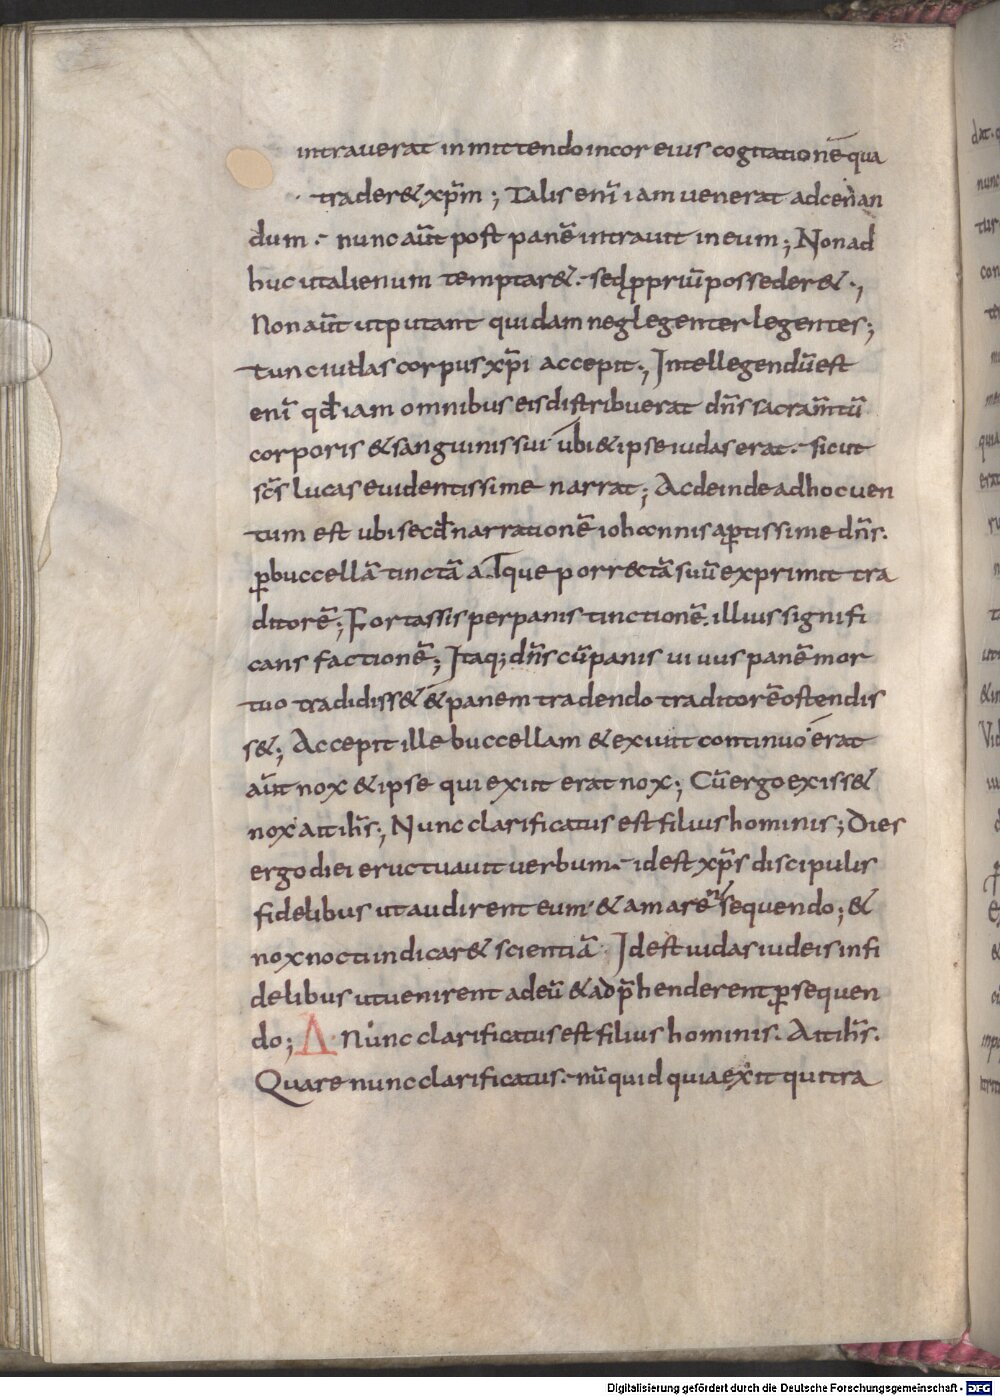 intrauerat inmittendo incor eius cogitationē qua
trader& xp̄m ; Talis enī iam uenerat adcenan
dum .- nunc aūt post panē intrauit ineum ; Nonad
huc utalienum temptar& .- sed ꝓpriū posseder& .,
Non aūt ut putant quidam neglegenter legentes ;
tunc iudas corpus xp̄i accepit ., Intellegendū est
enī qđ iam omnibus eis distribuerat dn̄s sacram̄tū
corporis & sanguinis sui ubi & ipse iudas erat .- sicut
sc̄s lucas euidentissime narrat ; Ac deinde ad hoc uen
tum est ubi secđ narrationē iohannis aꝑtissime dn̄s .
ꝑ buccellā tinctā atque porrectā suū exprimit tra
ditorē ; Fortassis per panis tinctionē . illius signifi
cans factionē ; Itaq; dn̄s cū panis uiuus panē mor
tuo tradidiss& & panem tradendo traditorē ostendis
s& ; Accepit ille buccellam & exiuit continuo erat
aūt nox & ipse qui exiit erat nox ; Cū ergo exiss&
nox ait ih̄s ; Nunc clarificatus est filius hominis ; Dies
ergo diei eructuauit uerbum .- id est xp̄s discipulis
fidelibus ut audirent eum & amarent sequendo ; &
nox nocti indicar& scientiā . Id est iudas iudeis infi
delibus ut uenirent ad eū & adp̄henderent ꝑsequen
do ; A Nunc clarificatus est filius hominis . Ait ih̄s .
Quare nunc clarificatus .- nū quid quia exiit qui tra
Digitalisierung gefördert durch die Deutsche Forschungsgemeinschaft - DFG